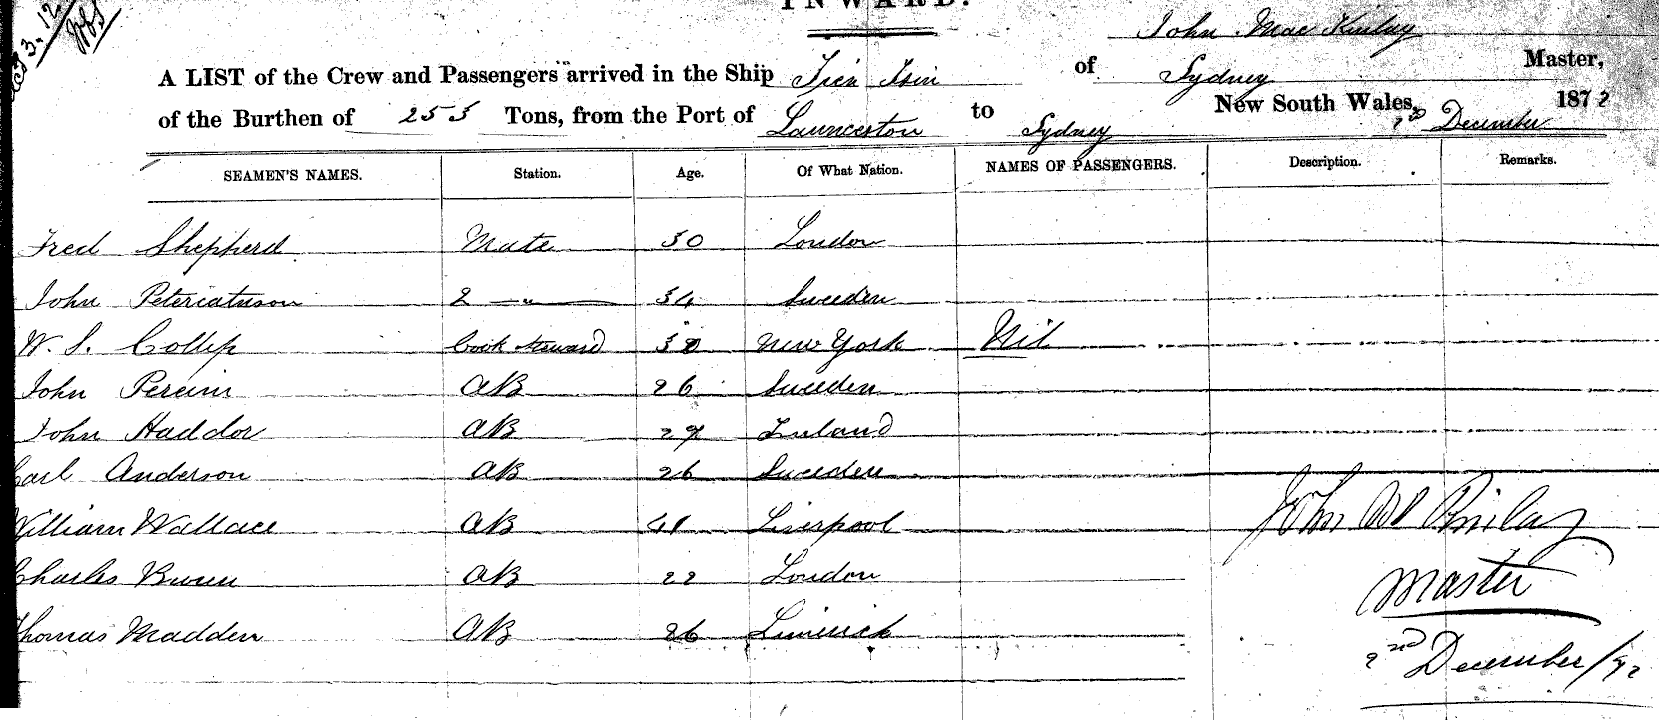 INWARD.
John Mac Kinlay
A LIST of the Crew and Passengers arrived in the Ship Tien Tsin of Sydney Master,
of the Burthen of 255 Tons, from the Port of Launceston to Sydney New South Wales, 2nd December 1872
SEAMEN'S NAMES. Station. Age. Of What Nation. NAMES OF PASSENGERS. Description. Remarks.
Fred Shepperd Mate 30 London
John 2 — " — 34 Sweden
W. S. Collep Cook Steward New York Nil
John AB 26 Sweden
John Haddor AB 27 Ireland
Carl Anderson AB 26 Sweden
William Wallace AB 41 Liverpool
Charles AB 22 London
Thomas Madden AB 26 Limerick
John Mc Kinlay
Master
2nd December/72